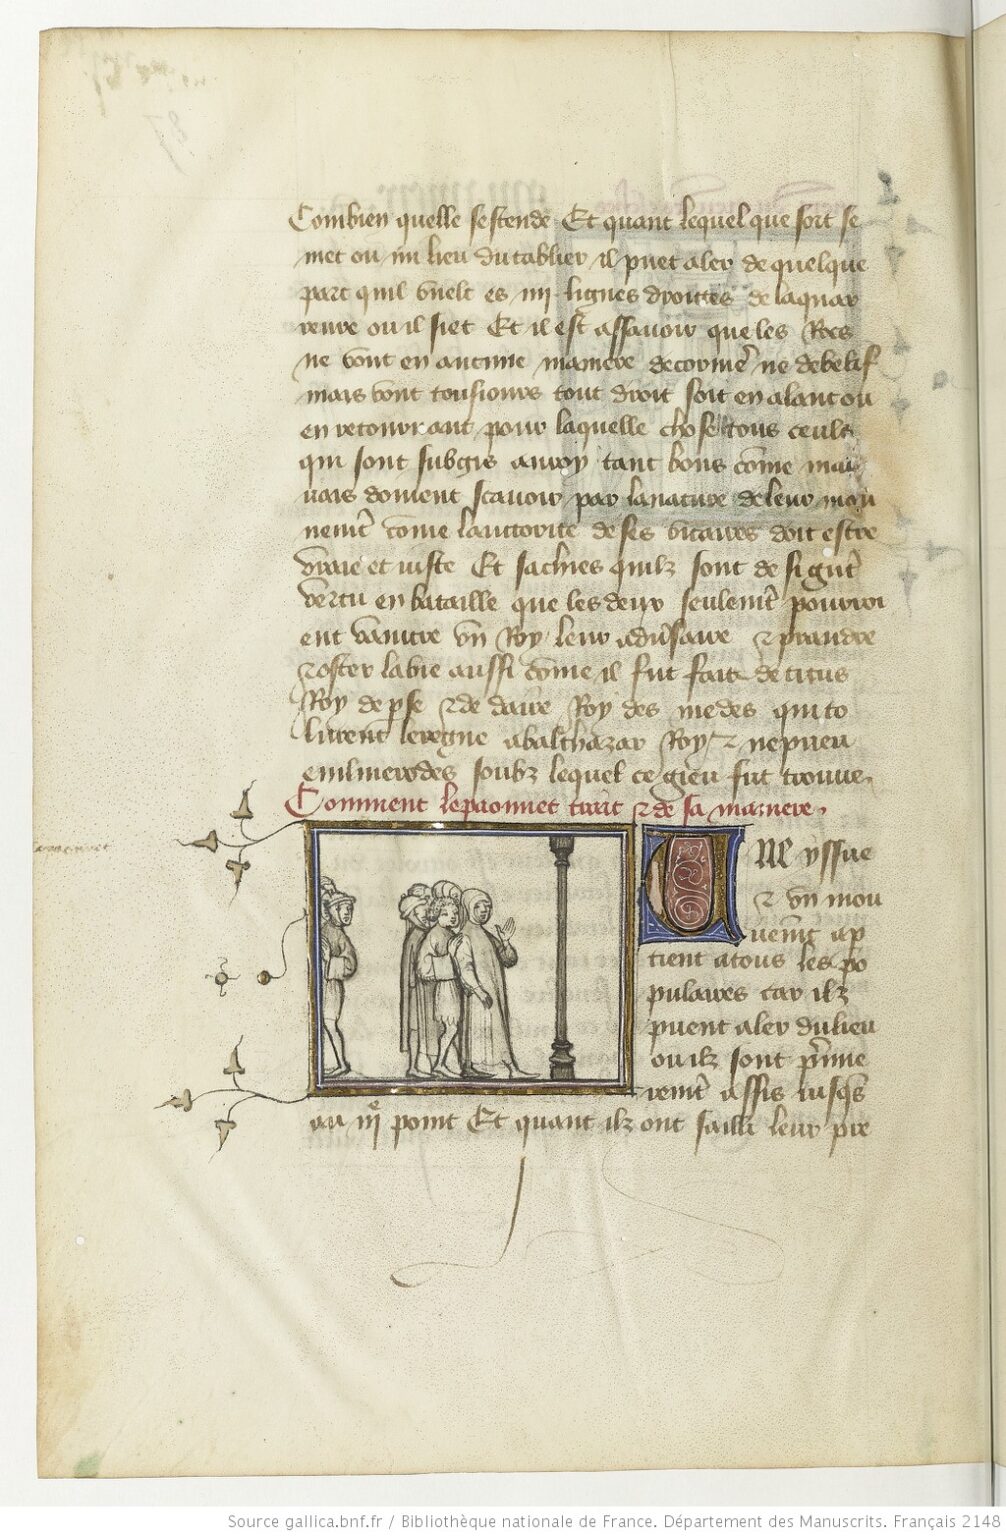 Combien quelle sestende Et quant lequel que soit se
met ou iiii lieu du tablier il puet aler de quelque
part quil vuelt es iiii lignes droittes de la quar
reure ou il siet Et il est assavoir que les Rocs
ne vont en aucune maniere de cornier ne de belif
mais vont tousiours tout droit soit en alant ou
en retournant pour laquelle chose tous ceulx
qui sont subgis au roy tant bons cõme mau
vais doivent scavoir par la nature de leur mou
vemẽt cõme lauctorite de ses vicaires doit estre
vraie et iuste Et sachies quilz sont de si grãt
vertu en bataille que les deux seulemẽt pourroi
ent vaincre vn Roy leur adũsaire ⁊ prandre
⁊ oster la vie aussi cõme il fut fait de cirus
Roy de p̱se ⁊ de daire Roy des medes qui to
lirent le regne a balthazar Roy ⁊ nepueu
euilmerodes soubz lequel ce gieu fut trouve
Comment le paonnet trait ⁊ de sa maniere
Une yssue
⁊ vn mou
vemẽt ap
tient a tous les po
pulaires car ilz
puent aler du lieu
ou ilz sont p̃mie
remẽt assis iusq̃s
au iiiᵉ point Et quant ilz ont sailli leur pre
Source gallica.bnf.fr / Bibliothèque nationale de France. Département des Manuscrits. Français 2148